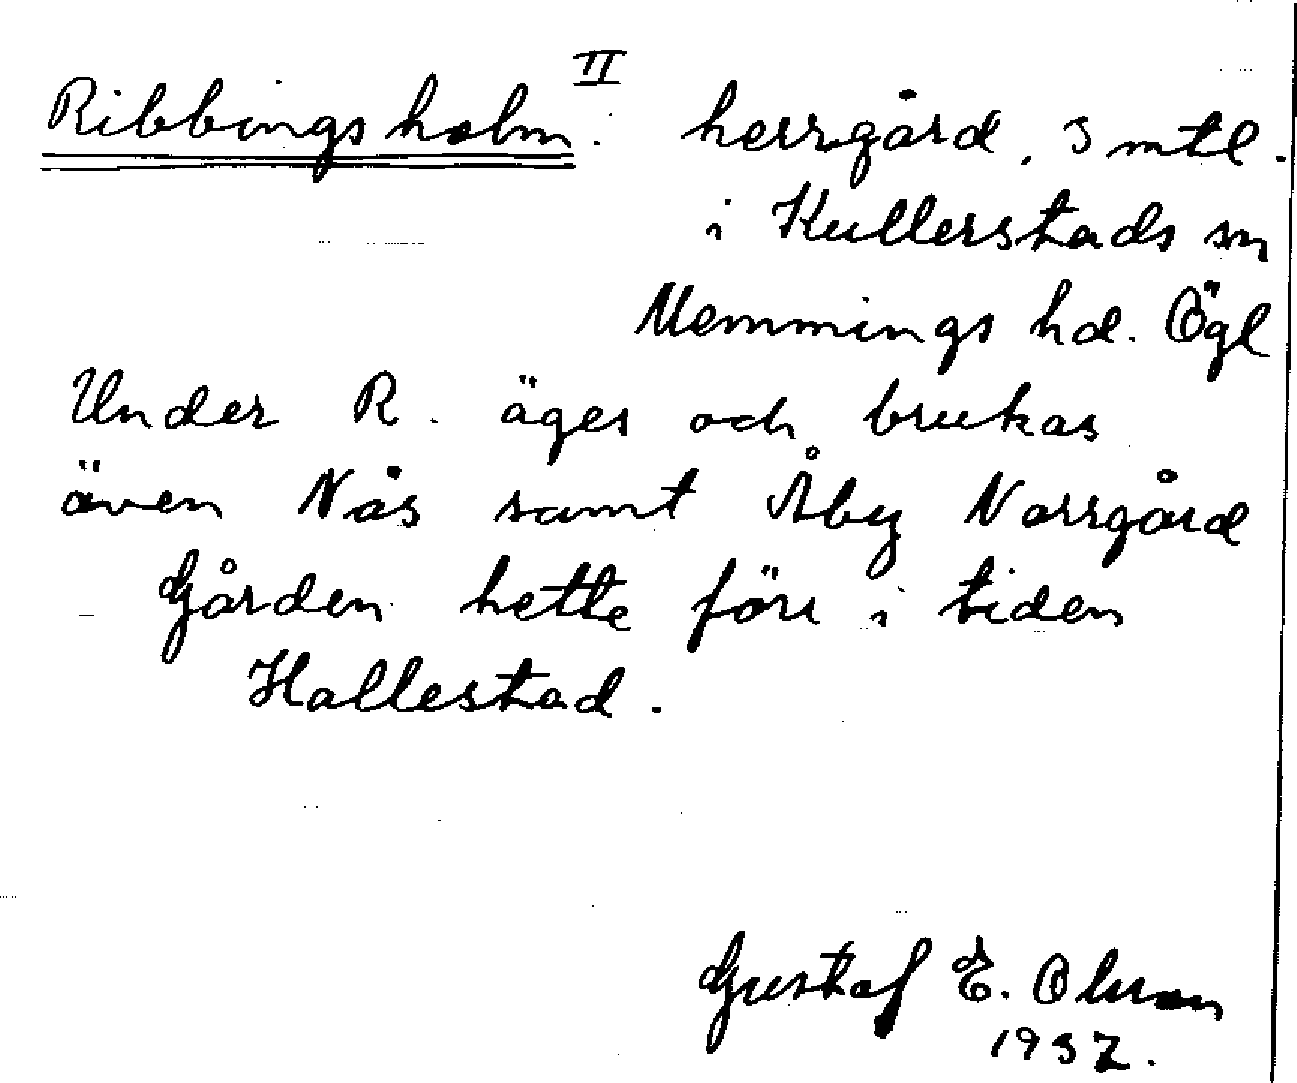 Ribbingsholm. II herrgård, 3 mtl.
i Kullerstads sn
Memmings hd. Ögl
Under R. äges och brukas
även Näs samt Åby Norrgård
Gården hette förr i tiden
Hallestad.
Gustaf E. Olsson
1932.